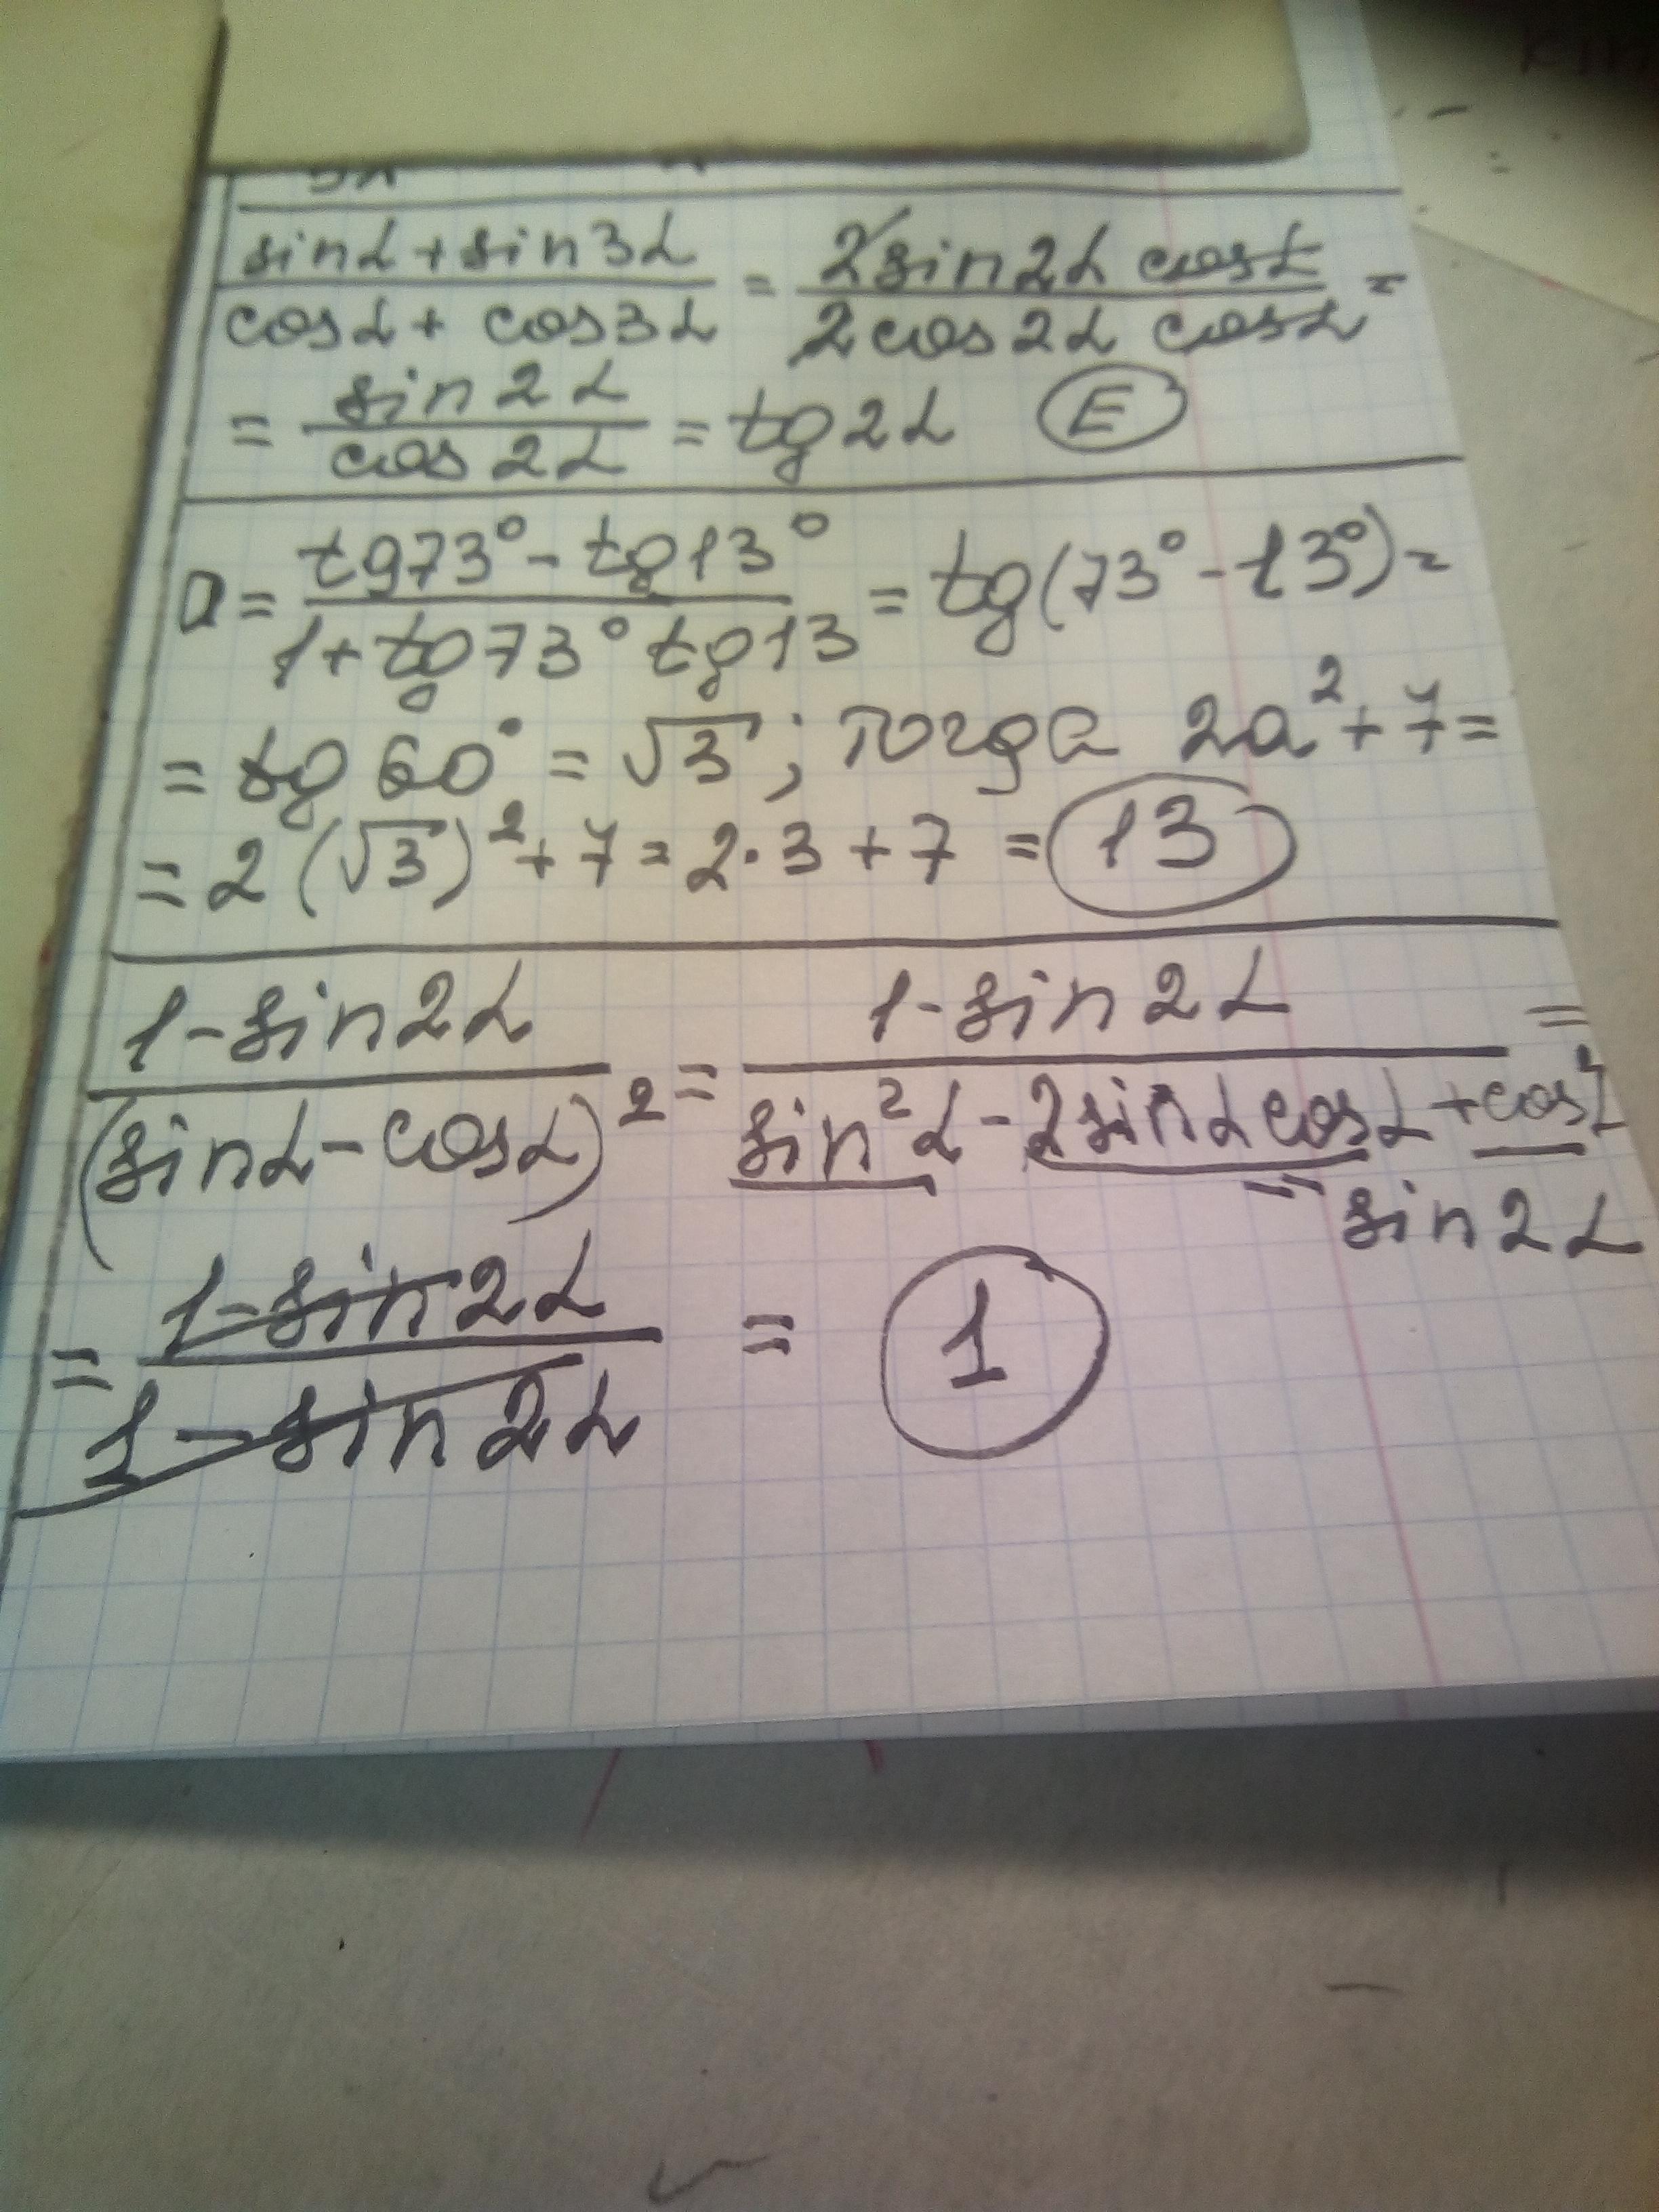 sinα + sin3α / cosα + cos3α = 2sin2α cosα / 2cos2α cosα =
= sin2α / cos2α = tg2α (E)
a = tg73° - tg13° / 1 + tg73° tg13 = tg(73° - 13°) =
= tg60° = √3; тогда 2a² + 7 =
= 2(√3)² + 7 = 2·3 + 7 = 13
1 - sin2α / (sinα - cosα)² = 1 - sin2α / sin²α - 2sinα cosα + cos²α =
= sin2α
= 1 - sin2α / 1 - sin2α = 1